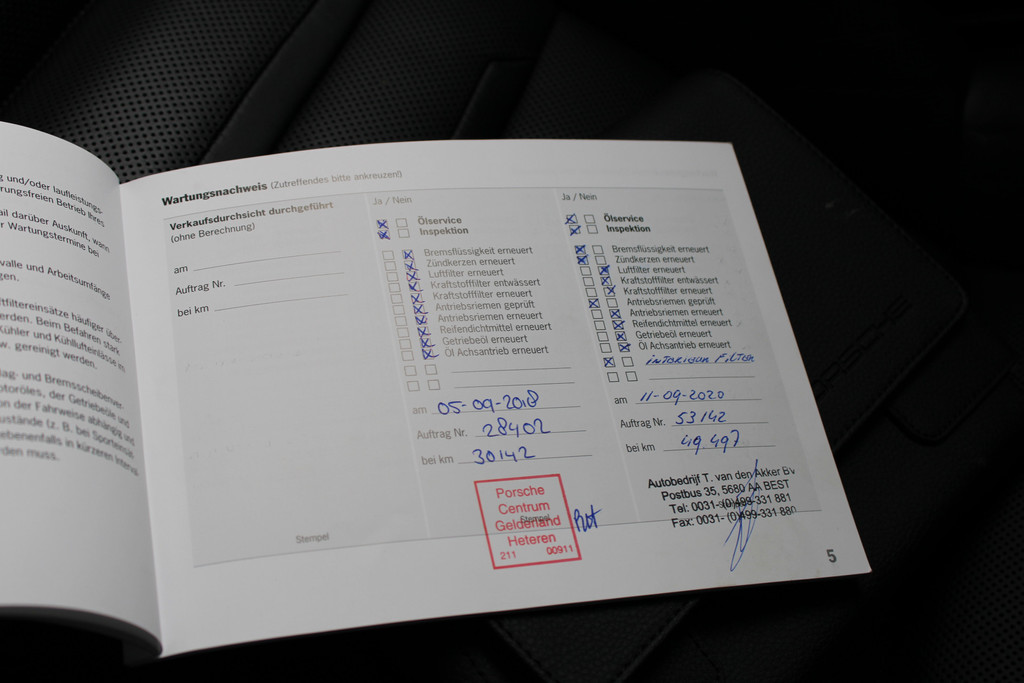 g und/oder laufleistungs-
rungsfreien Betrieb Ihres
ail darüber Auskunft, wann
r Wartungstermine bei
valle und Arbeitsumfänge
gen.
tfiltereinsätze häufiger über-
erden. Beim Befahren stark
Kühler und Kühllufteinlässe im
w. gereinigt werden.
lag- und Bremsscheibenver-
otoröles, der Getriebeöle und
on der Fahrweise abhängig und
ustände (z. B. bei Sporteinsatz
ebenenfalls in kürzeren Interval
rden muss.
Wartungsnachweis (Zutreffendes bitte ankreuzen!)
Verkaufsdurchsicht durchgeführt
(ohne Berechnung)
am
Auftrag Nr.
bei km
Stempel
Ja / Nein
Ölservice
Inspektion
Bremsflüssigkeit erneuert
Zündkerzen erneuert
Luftfilter erneuert
Kraftstofffilter entwässert
Kraftstofffilter erneuert
Antriebsriemen geprüft
Antriebsriemen erneuert
Reifendichtmittel erneuert
Getriebeöl erneuert
Öl Achsantrieb erneuert
am 05-09-2018
Auftrag Nr. 28402
bei km 30142
Porsche
Centrum
Gelderland
Stempel
Heteren
211 00911
Ja / Nein
Ölservice
Inspektion
Bremsflüssigkeit erneuert
Zündkerzen erneuert
Luftfilter erneuert
Kraftstofffilter entwässert
Kraftstofffilter erneuert
Antriebsriemen geprüft
Antriebsriemen erneuert
Reifendichtmittel erneuert
Getriebeöl erneuert
Öl Achsantrieb erneuert
INTERIEUR FILTER
am 11-09-2020
Auftrag Nr. 53142
bei km 49.497
Autobedrijf T. van den Akker Bv
Postbus 35, 5680 AA BEST
Tel: 0031-(0)499-331 881
Fax: 0031-(0)499-331 880
5